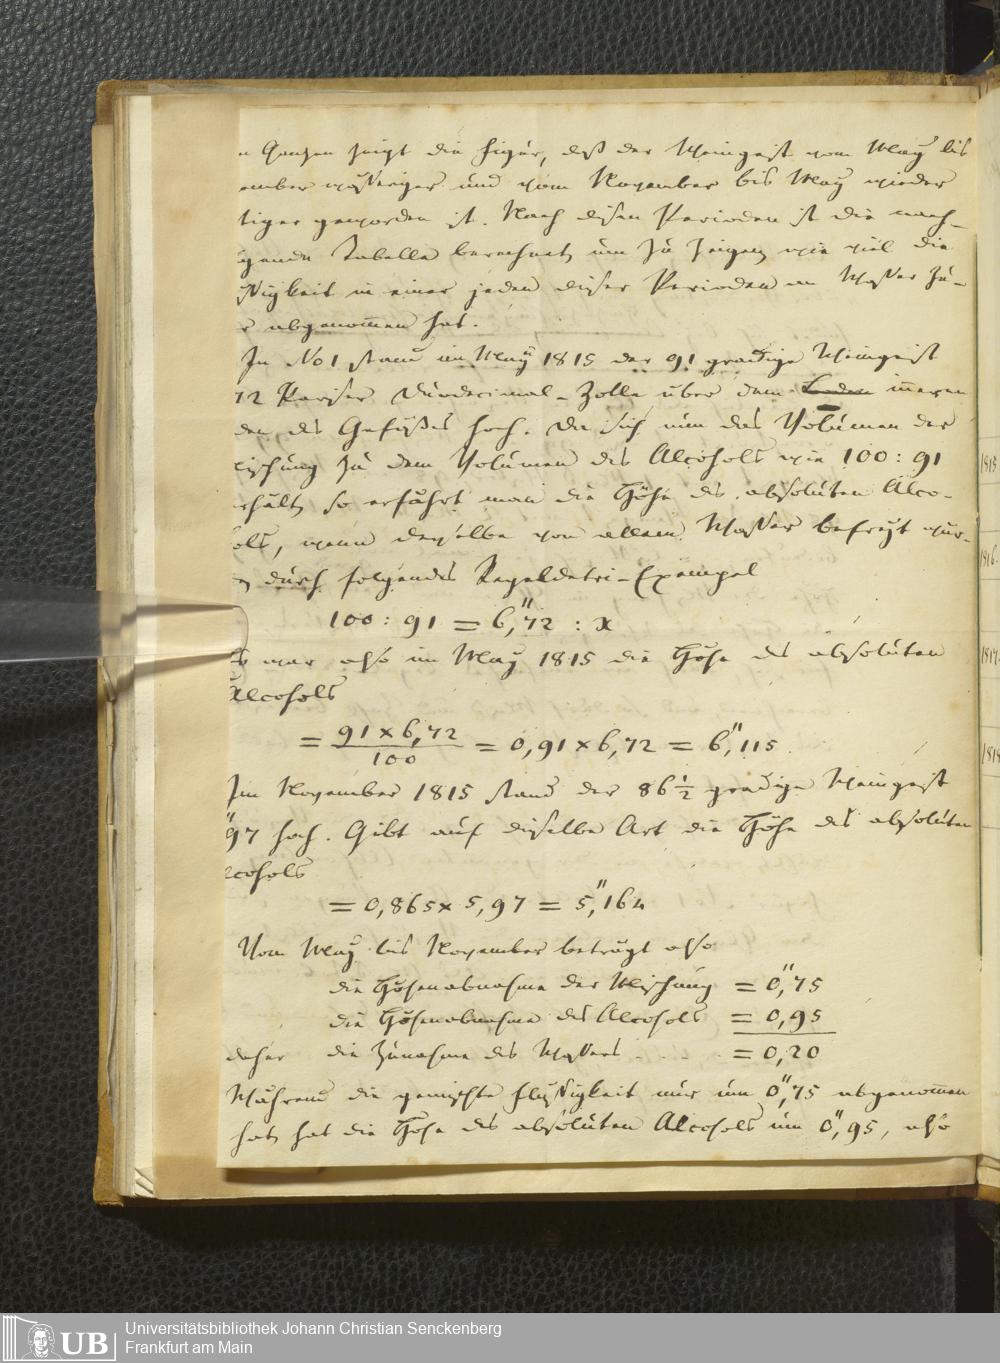 n Ganzen zeigt die Figur, daß der Weingeist vom May bis
ember wäßeriger und vom November bis May wieder
tiger geworden ist. Nach diesen Perioden ist die nach-
gende Tabelle berechnet, um zu zeigen, wie viel die
ßigkeit in einer jeden dieser Perioden an Waßer zu-
r abgenommen hat.
In No 1 stand im May 1815 der 91 gradige Weingeist
72 Pariser Duodecimal-Zolle über dem Boden inneren
den des Gefäßes hoch. Da sich nun das Volumen der
ischung zu dem Volumen des Alcohols wie 100 : 91
rhält, so erfährt man die Höhe des absoluten Alco-
ols, wenn derselbe von allem Waßer befreyt wür-
durch folgendes Regeldetri-Exempel
100 : 91 = 6,"72 : x
Es war also im May 1815 die Höhe des absoluten
Alcohols
= 91 x 6,72 / 100 = 0,91 x 6,72 = 6,"115
Im November 1815 stand der 86 1/2 gradige Weingeist
"97 hoch. Gibt auf dieselbe Art die Höhe des absoluten
lcohols
= 0,865 x 5,97 = 5,"164
Vom May bis November beträgt also
die Höhenabnahme der Mischung = 0,"75
die Höhenabnahme des Alcohols = 0,95
daher die Zunahme des Waßers . . . . = 0,20
Während die gemischte Flüßigkeit nur um 0,"75 abgenommen
hat, hat die Höhe des absoluten Alcohols um 0,"95, also
1815
1816.
1817.
1818
UB
Universitätsbibliothek Johann Christian Senckenberg
Frankfurt am Main